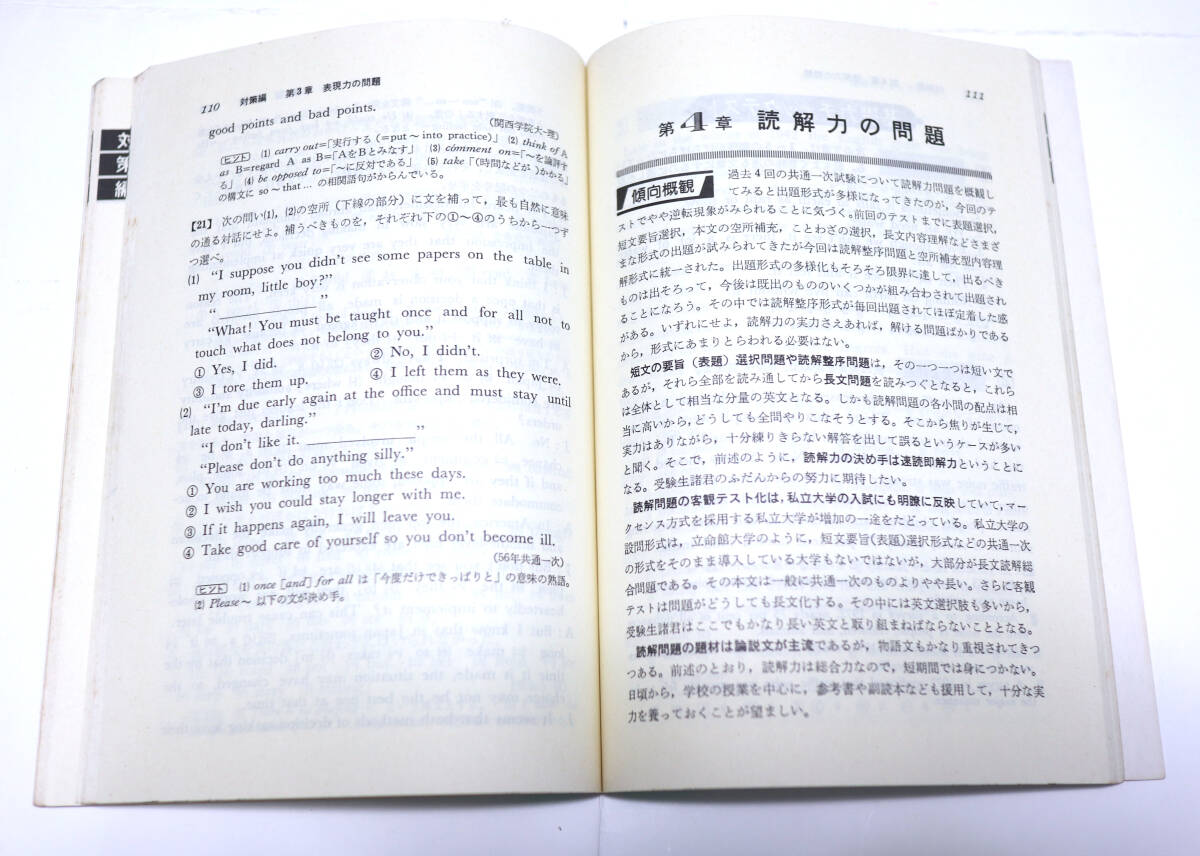 対
策
編
110 対策編 第3章 表現力の問題
good points and bad points.
(関西学院大-理)
ヒント (1) carry out=「実行する (=put~into practice)」 (2) think of A
as B=regard A as B=「AをBとみなす」 (3) comment on=「~を論評す
る」 (4) be opposed to=「~に反対である」 (5) take「(時間などが)かかる」
の構文に so~that … の相関語句がからんでいる。
【21】 次の問い(1), (2)の空所(下線の部分)に文を補って, 最も自然に意味
の通る対話にせよ。補うべきものを, それぞれ下の①~④のうちから一つず
つ選べ。
(1) “I suppose you didn't see some papers on the table in
my room, little boy?”
“ ____________ ”
“What! You must be taught once and for all not to
touch what does not belong to you.”
① Yes, I did. ② No, I didn't.
③ I tore them up. ④ I left them as they were.
(2) “I'm due early again at the office and must stay until
late today, darling.”
“I don't like it. ____________ ”
“Please don't do anything silly.”
① You are working too much these days.
② I wish you could stay longer with me.
③ If it happens again, I will leave you.
④ Take good care of yourself so you don't become ill.
(56年共通一次)
ヒント (1) once [and] for all は「今度だけできっぱりと」の意味の熟語。
(2) Please~ 以下の文が決め手。
111
第4章 読解力の問題
傾向概観 過去4回の共通一次試験について読解力問題を概観し
てみると出題形式が多様になってきたのが, 今回のテ
ストでやや逆転現象がみられることに気づく。前回のテストまでに表題選択,
短文要旨選択, 本文の空所補充, ことわざの選択, 長文内容理解などさまざ
まな形式の出題が試みられてきたが今回は読解整序問題と空所補充型内容理
解形式に統一された。出題形式の多様化もそろそろ限界に達して, 出るべき
ものは出そろって, 今後は既出のもののいくつかが組み合わされて出題され
ることになろう。その中では読解整序形式が毎回出題されてほぼ定着した感
がある。いずれにせよ, 読解力の実力さえあれば, 解ける問題ばかりである
から, 形式にあまりとらわれる必要はない。
短文の要旨(表題)選択問題や読解整序問題は, その一つ一つは短い文で
あるが, それら全部を読み通してから長文問題を読みつぐとなると, これら
は全体として相当な分量の英文となる。しかも読解問題の各小問の配点は相
当に高いから, どうしても全問やりこなそうとする。そこから焦りが生じて,
実力はありながら, 十分練りきらない解答を出して誤るというケースが多い
と聞く。そこで, 前述のように, 読解力の決め手は速読即解力ということに
なる。受験生諸君のふだんからの努力に期待したい。
読解問題の客観テスト化は, 私立大学の入試にも明瞭に反映していて, マー
クセンス方式を採用する私立大学が増加の一途をたどっている。私立大学の
設問形式は, 立命館大学のように, 短文要旨(表題)選択形式などの共通一次
の形式をそのまま導入している大学もないではないが, 大部分が長文読解総
合問題である。その本文は一般に共通一次のものよりやや長い。さらに客観
テストは問題がどうしても長文化する。その中には英文選択肢も多いから,
受験生諸君はここでもかなり長い英文と取り組まねばならないこととなる。
読解問題の題材は論説文が主流であるが, 物語文もかなり重視されてきつ
つある。前述のとおり, 読解力は総合力なので, 短期間では身につかない。
日頃から, 学校の授業を中心に, 参考書や副読本なども援用して, 十分な実
力を養っておくことが望ましい。